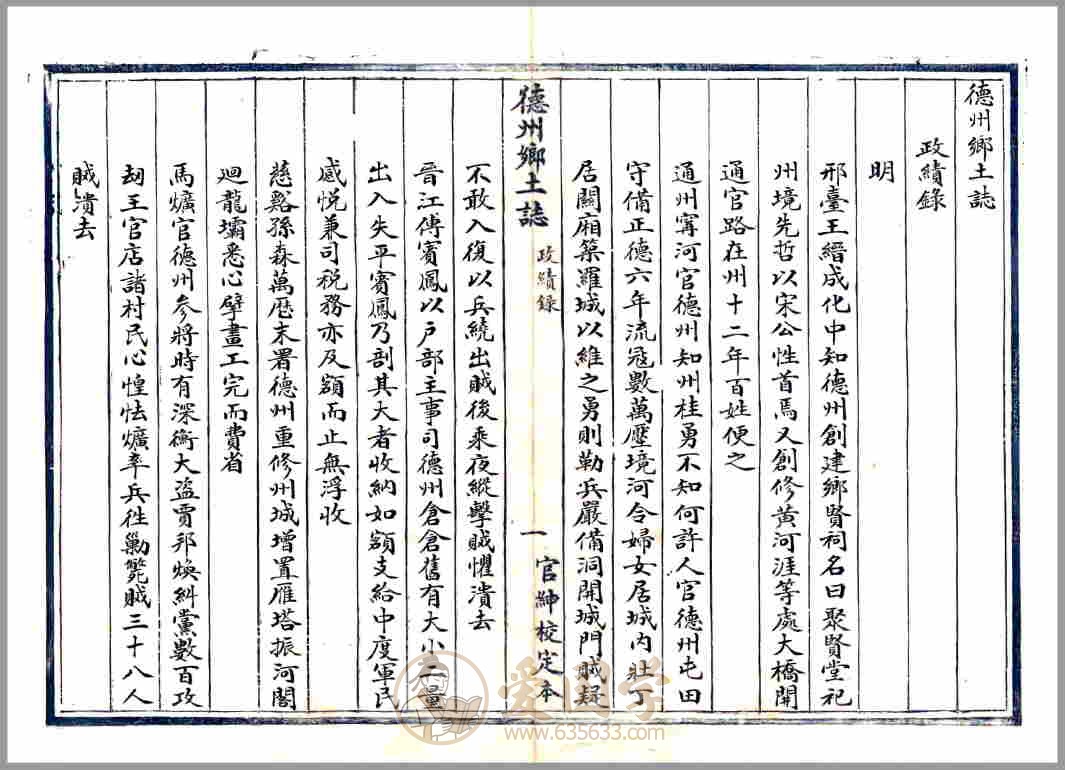 德州鄉土誌
政績錄
明
邢臺王縉成化中知德州創建鄉賢祠名曰聚賢堂祀
州境先哲以宋公性首焉又創修黄河涯等處大橋開
通官路在州十二年百姓便之
通州寗河官德州知州桂勇不知何許人官德州屯田
守備正德六年流寇數萬壓境河令婦女居城内壯丁
居關廂築羅城以維之勇則勒兵嚴備洞開城門賊疑
德州鄉土誌 政績錄 一 官紳校定本
不敢入復以兵繞出賊後乘夜縱擊賊懼潰去
晉江傅賓鳳以户部主事司德州倉倉舊有大小二量
出入失平賓鳳乃剖其大者收納如額支給中度軍民
感悦兼司税務亦及額而止無浮收
慈谿孫森萬歷末署德州重修州城增置雁塔振河閣
廻龍壩悉心擘畫工完而費省
馬爌官德州參將時有深衡大盜賈邦煥糾黨數百攻
刼王官店諸村民心惶怯爌率兵徃勦斃賊三十八人
賊潰去
爱国学
www.635633.com